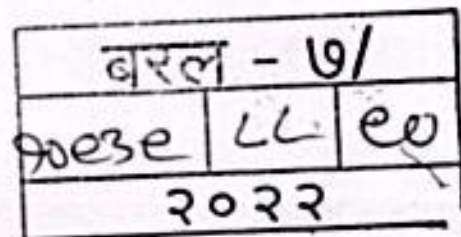 बरल - ७/
१०९३९ ८८ ९०
२०२२